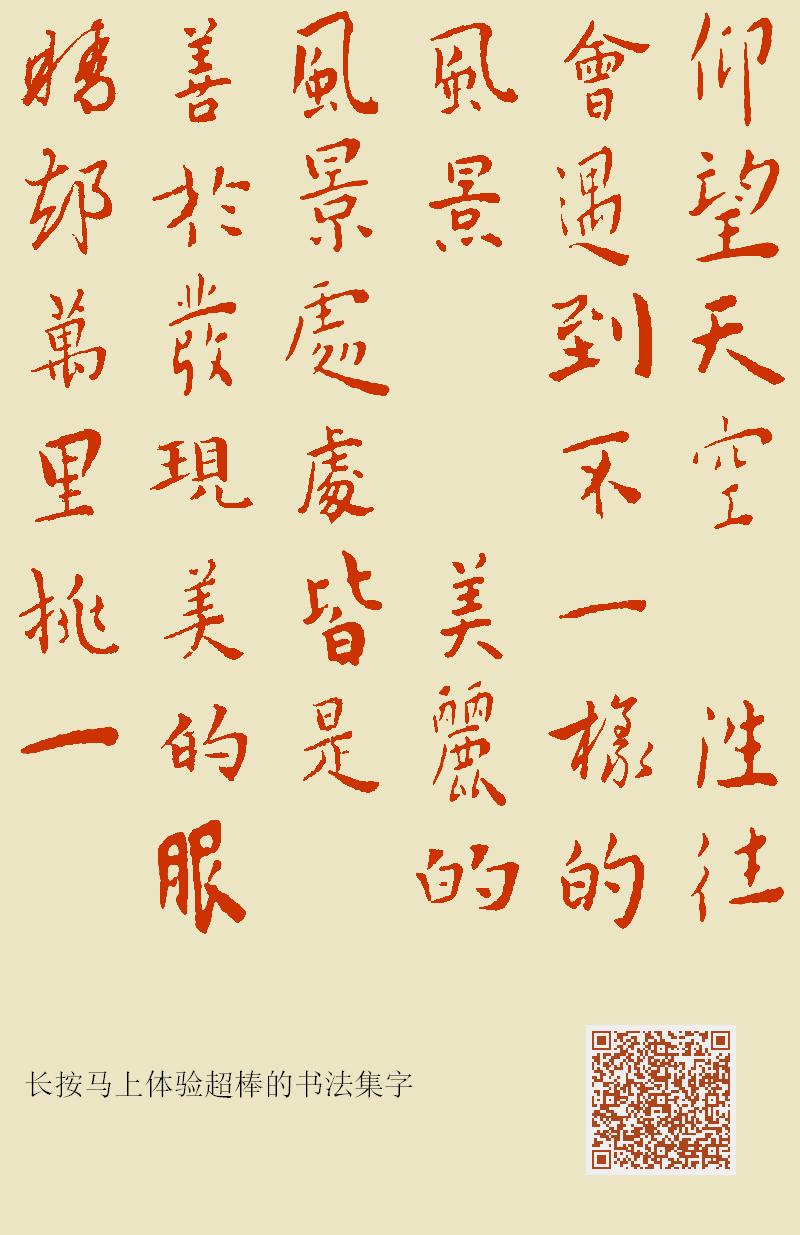 仰望天空 往往
會遇到不一樣的
風景 美麗的
風景處處皆是
善於發現美的眼
睛却萬里挑一
长按马上体验超棒的书法集字